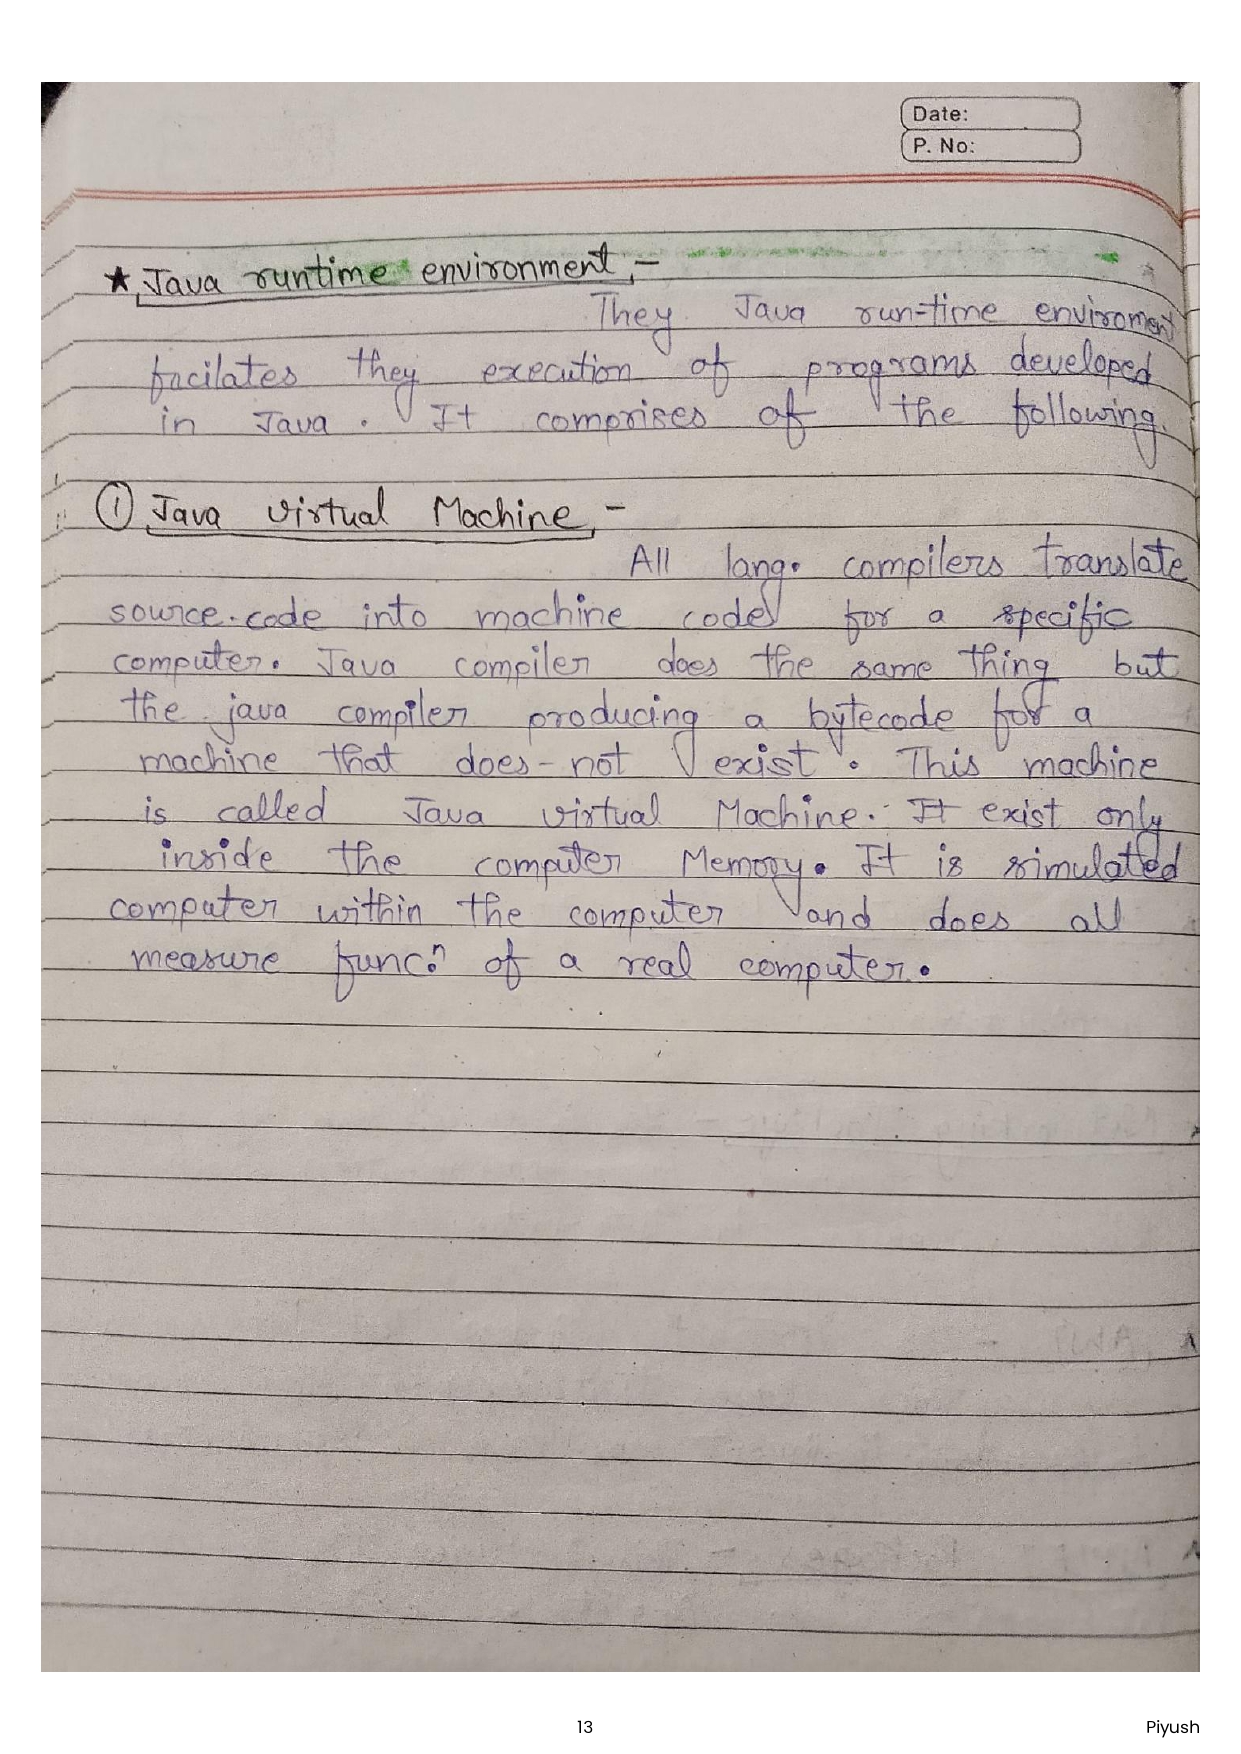 Date:
P. No:
★ Java runtime environment,-
They Java run-time enviroment
facilates they execution of programs developed
in Java. It comprises of the following.
① Java virtual Machine,-
All lang. compilers translate
source.code into machine code for a specific
computer. Java compiler does the same thing but
the java compiler producing a bytecode for a
machine that does-not exist. This machine
is called Java virtual Machine. It exist only
inside the computer Memory. It is simulated
computer within the computer and does all
measure func.n of a real computer.
13
Piyush